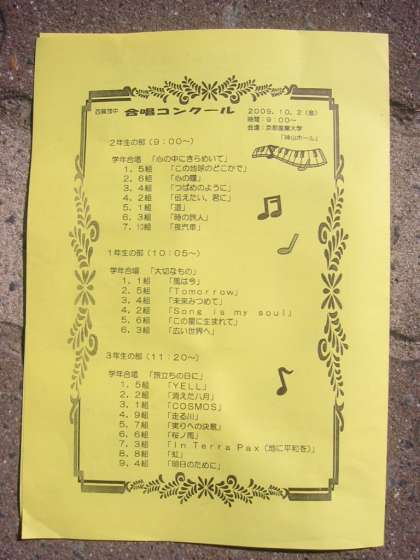 西賀茂中 合唱コンクール
2009.10.2(金)
時間:9:00〜
会場:京都産業大学
「神山ホール」
2年生の部(9:00〜)
学年合唱 「心の中にきらめいて」
1.5組 「この地球のどこかで」
2.6組 「心の瞳」
3.4組 「つばめのように」
4.2組 「伝えたい、君に」
5.1組 「道」
6.3組 「時の旅人」
7.10組 「夜汽車」
1年生の部(10:05〜)
学年合唱 「大切なもの」
1.1組 「風は今」
2.5組 「Tomorrow」
3.4組 「未来みつめて」
4.2組 「Song is my soul」
5.6組 「この星に生まれて」
6.3組 「広い世界へ」
3年生の部(11:20〜)
学年合唱 「旅立ちの日に」
1.5組 「YELL」
2.2組 「消えた八月」
3.1組 「COSMOS」
4.9組 「走る川」
5.7組 「実りへの決意」
6.6組 「桜ノ雨」
7.3組 「In Terra Pax(地に平和を)」
8.8組 「虹」
9.4組 「明日のために」